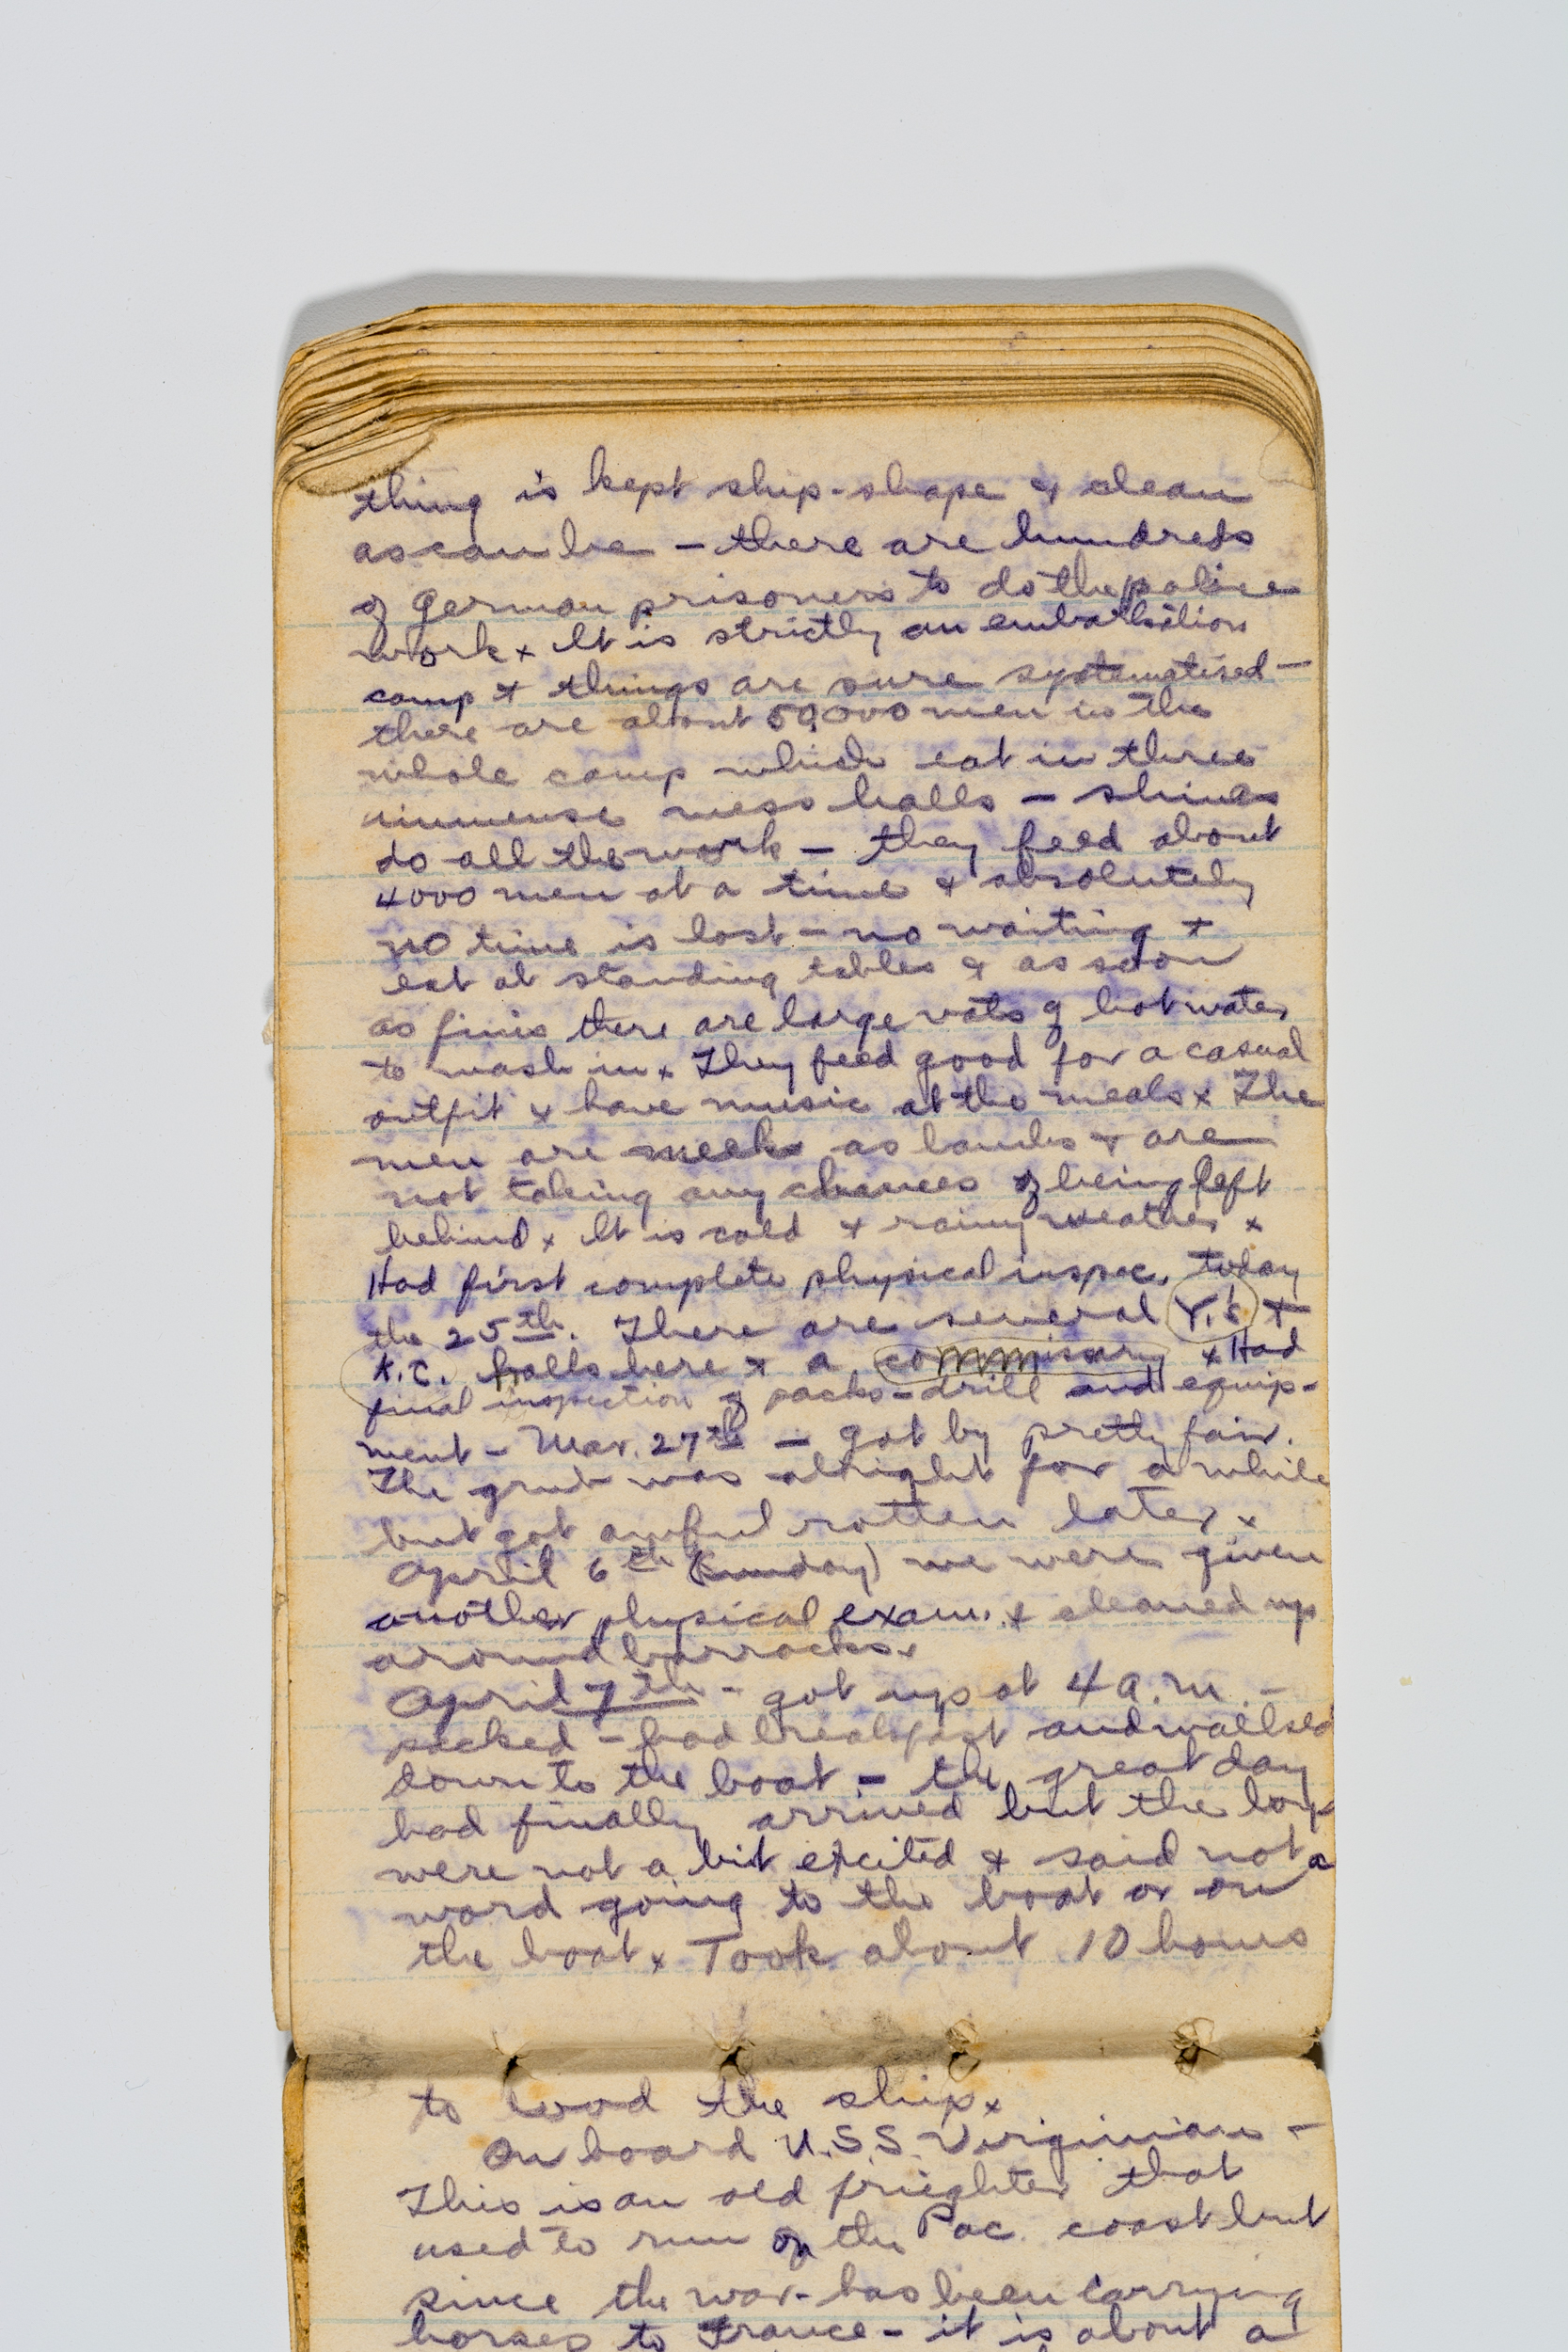 thing is kept ship-shape & clean
as can be - there are hundreds
of German prisoners to do the police
work x It is strictly an embarkation
camp & things are sure systematised -
there are about 50,000 men in the
whole camp which eat in three
immense mess halls - shines
do all the work - they feed about
4000 men at a time & absolutely
no time is lost - no waiting +
eat at standing tables & as soon
as finis there are large vats of hot water
to wash in x They feed good for a casual
outfit & have music at the meals x The
men are meek as lambs & are
not taking any chances of being left
behind x It is cold & rainy weather x
Had first complete physical inspec. today
the 25th. There are several Y.'s +
K.C. halls here x a commissary x Had
final inspection of packs - drill and equip-
ment - Mar. 27th - got by pretty fair.
The grub was alright for a while
but got awful rotten later x
April 6th (Sunday) we were given
another physical exam. & cleaned up
around barracks.
April 7th - got up at 4 a.m. -
packed - had breakfast and walked
down to the boat - the great day
had finally arrived but the boys
were not a bit excited & said not a
word going to the boat or on
the boat x Took about 10 hours
to load the ship x
On board U.S.S. Virginian -
This is an old frieghter that
used to run on the Pac. coast but
since the war - has been carrying
horses to France - it is about a